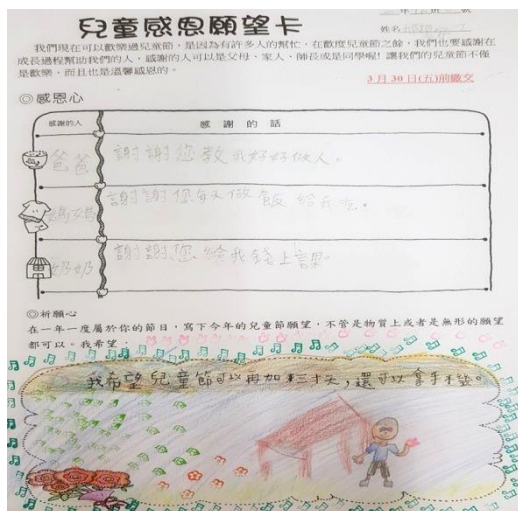 兒童感恩願望卡
姓名
我們現在可以歡樂過兒童節，是因為有許多人的幫忙，在歡度兒童節之餘，我們也要感謝在
成長過程幫助我們的人，感謝的人可以是父母、家人、師長或是同學喔！讓我們的兒童節不僅
是歡樂，而且也是溫馨感恩的。
3月30日(五)前繳交
◎感恩心
感謝的人 感謝的話
爸爸 謝謝您教我好好做人。
媽媽 謝謝您每天做飯給我吃。
奶奶 謝謝您給我錢上課。
◎祈願心
在一年一度屬於你的節日，寫下今年的兒童節願望，不管是物質上或者是無形的願望
都可以。我希望
我希望兒童節可以再加三十天，還可以拿手